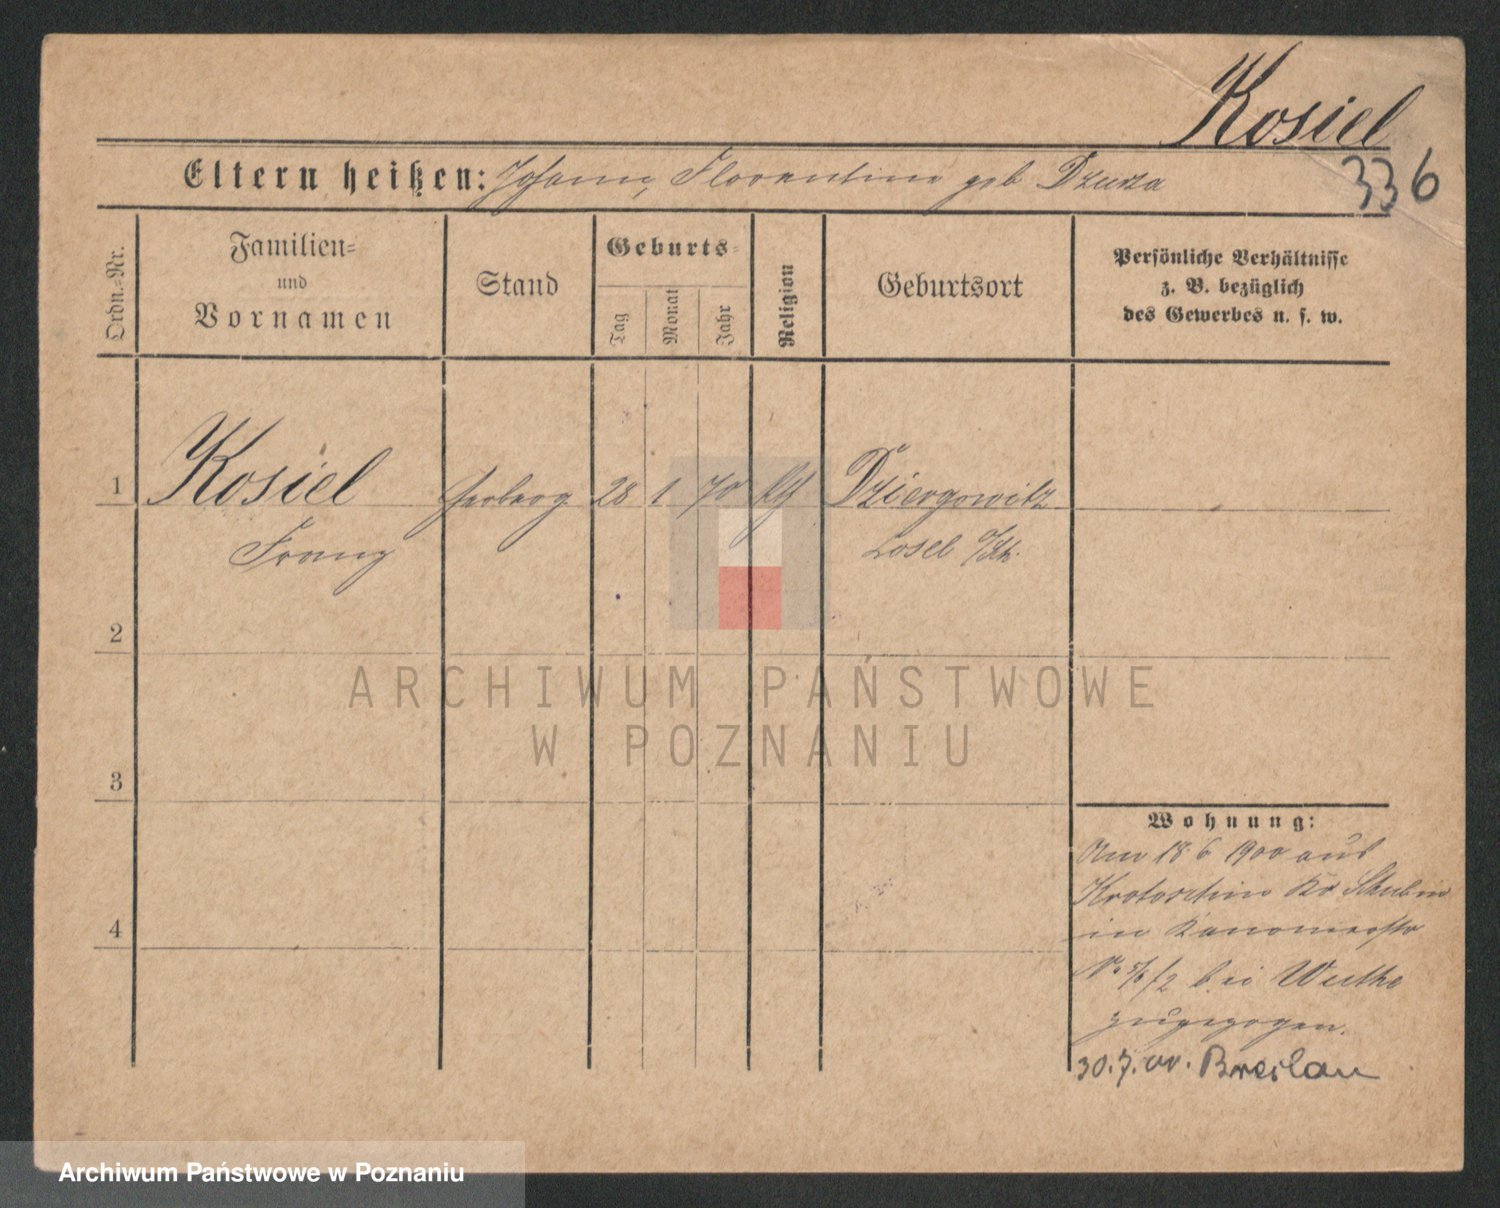 Kosiel
336
Eltern heißen: Johann, Florentine geb Dzurza
Ordn.-Nr.
Familien-
und
Vornamen
Stand
Geburts-
Tag
Monat
Jahr
Religion
Geburtsort
Persönliche Verhältnisse
z. B. bezüglich
des Gewerbes u. s. w.
1 Kosiel 28 1 70 Dziergowitz
Franz Cosel O/Schl.
2
3
4
Wohnung:
Am 18 6 1900 aus
Krotoschin Kr Schubin
in Kanonierstr
No 5/6/2 bei Wuthe
zugezogen.
30.7.00. Breslau
ARCHIWUM PAŃSTWOWE
W POZNANIU
Archiwum Państwowe w Poznaniu